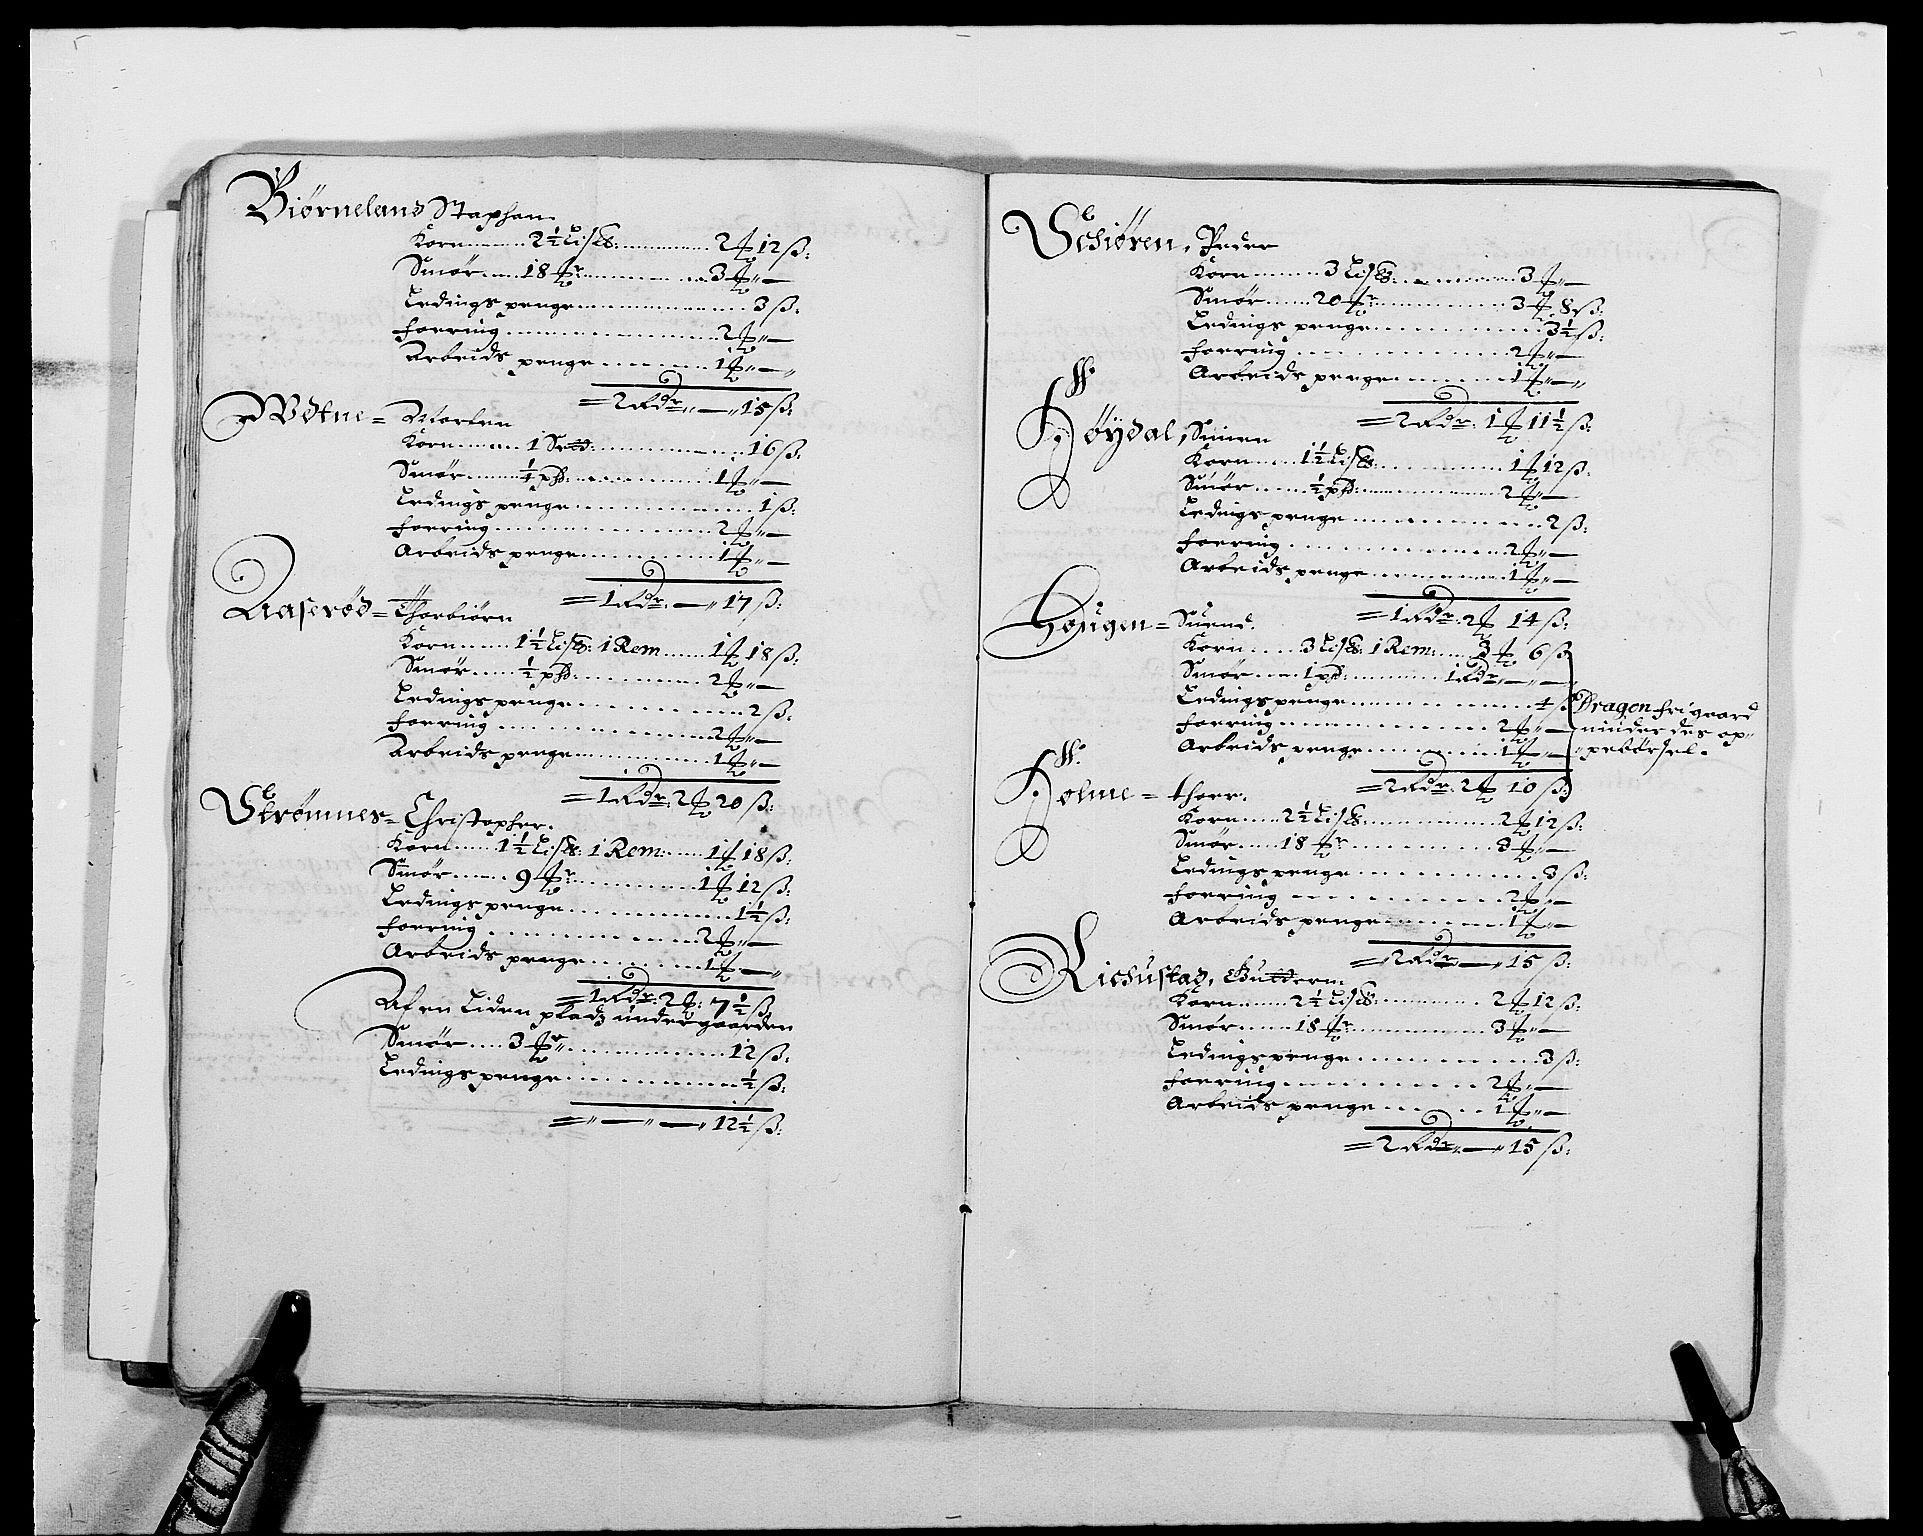 Biørneland Staphen
Korn 2½ Lis℔: 2 ℔ 12 ß:
Smør 18 ℔r 3 ℔ "—
Ledings penge 3 ß:
Foering 2 ℔ "—
Arbeids penge 1 ℔ "—"
= 2 Rdr "—" 15 ß:
Morten
Korn 1 Sett: 16 ß:
Smør ¼ pd: 1 ℔ "—
Ledings penge 1 ß:
Foering 2 ℔ "—
Arbeids penge 1 ℔ "—
= 1 Rdr: —" 17 ß:
Aaserød = Thorbiørn
Korn 1½ Lis℔: 1 Rem 1 ℔ 18 ß:
Smør ½ pd: 2 ℔ "—
Ledings penge 2 ß:
Foering 2 ℔ "—
Arbeids penge 1 ℔ "—
= 1 Rdr: 2 ℔ 20 ß:
Strømnes = Christopher.
Korn 1½ Lis℔: 1 Rem: 1 ℔ 18 ß:
Smør 9 ℔r 1 ℔ 12 ß:
Ledings penge 1½ ß:
Foering 2 ℔ "—
Arbeids penge 1 ℔ —"
= 1 Rdr: 2 ℔: 7½ ß
Af en Liden pladz under gaarden
Smør 3 ℔r" 12 ß:
Ledings penge ½ ß:
= " — " —" 12½ ß:
Schiøren, Peder
Korn 3 Lis℔: 3 ℔ "—
Smør 20 ℔r 3 ℔ 8 ß:
Ledings penge 3½ ß:
Foering 2 ℔ "—
Arbeids penge 1 ℔ "—"
= 2 Rdr: 1 ℔ 11½ ß:
Høydal, Simen
Korn 1½ Lis℔: 1 ℔ 12 ß:
Smør ½ pd: 2 ℔ "—
Ledings penge 2 ß:
Foering 2 ℔ "—
Arbeids penge 1 ℔ "—
= 1 Rdr: 2 ℔ 14 ß:
Hougen = Suend.
Korn 3 Lis℔: 1 Rem: 3 ℔ 6 ß
Smør 1 pd: 1 Rdr "—"—
Ledings penge 4 ß
Foering 2 ℔ "—
Arbeids penge 1 ℔ "—
= 2 Rdr: 2 ℔ 10 ß:
Dragon fri gaard
minder des op"
"pebørsel.
Holme = Thorr.
Korn 2½ Lis℔ 2 ℔ 12 ß:
Smør 18 ℔r 3 ℔ "—
Ledings penge 3 ß:
Foering 2 ℔ "—
Arbeids penge 1 ℔ "—
= 2 Rdr "—" 15 ß:
Richustad, Guttorm
Korn 2½ Lis℔: 2 ℔ 12 ß:
Smør 18 ℔r 3 ℔ "—
Ledings penge 3 ß:
Foering 2 ℔ "—
Arbeids penge 1 ℔ "—
= 2 Rdr "—" 15 ß: